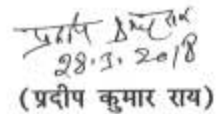 प्रदीप कुमार राय
28.3.2018
(प्रदीप कुमार राय)